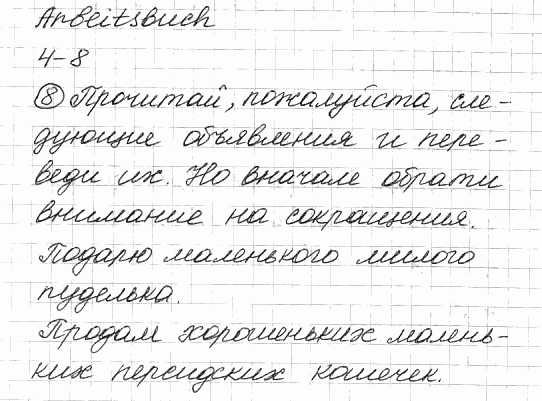 Arbeitsbuch
4-8
⑧ Прочитай, пожалуйста, сле-
дующие объявления и пере-
веди их. Но вначале обрати
внимание на сокращения.
Подарю маленького милого
пуделька.
Продам хорошеньких малень-
ких персидских кошечек.